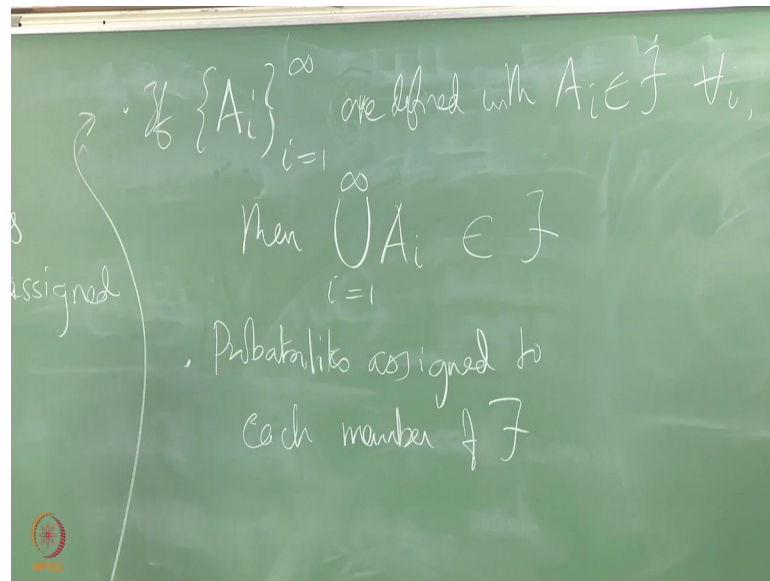 · If {A_i}_{i=1}^∞ are defined with A_i ∈ F ∀i,
then ⋃_{i=1}^∞ A_i ∈ F
assigned
· Probabilities assigned to
each member of F
NPTEL